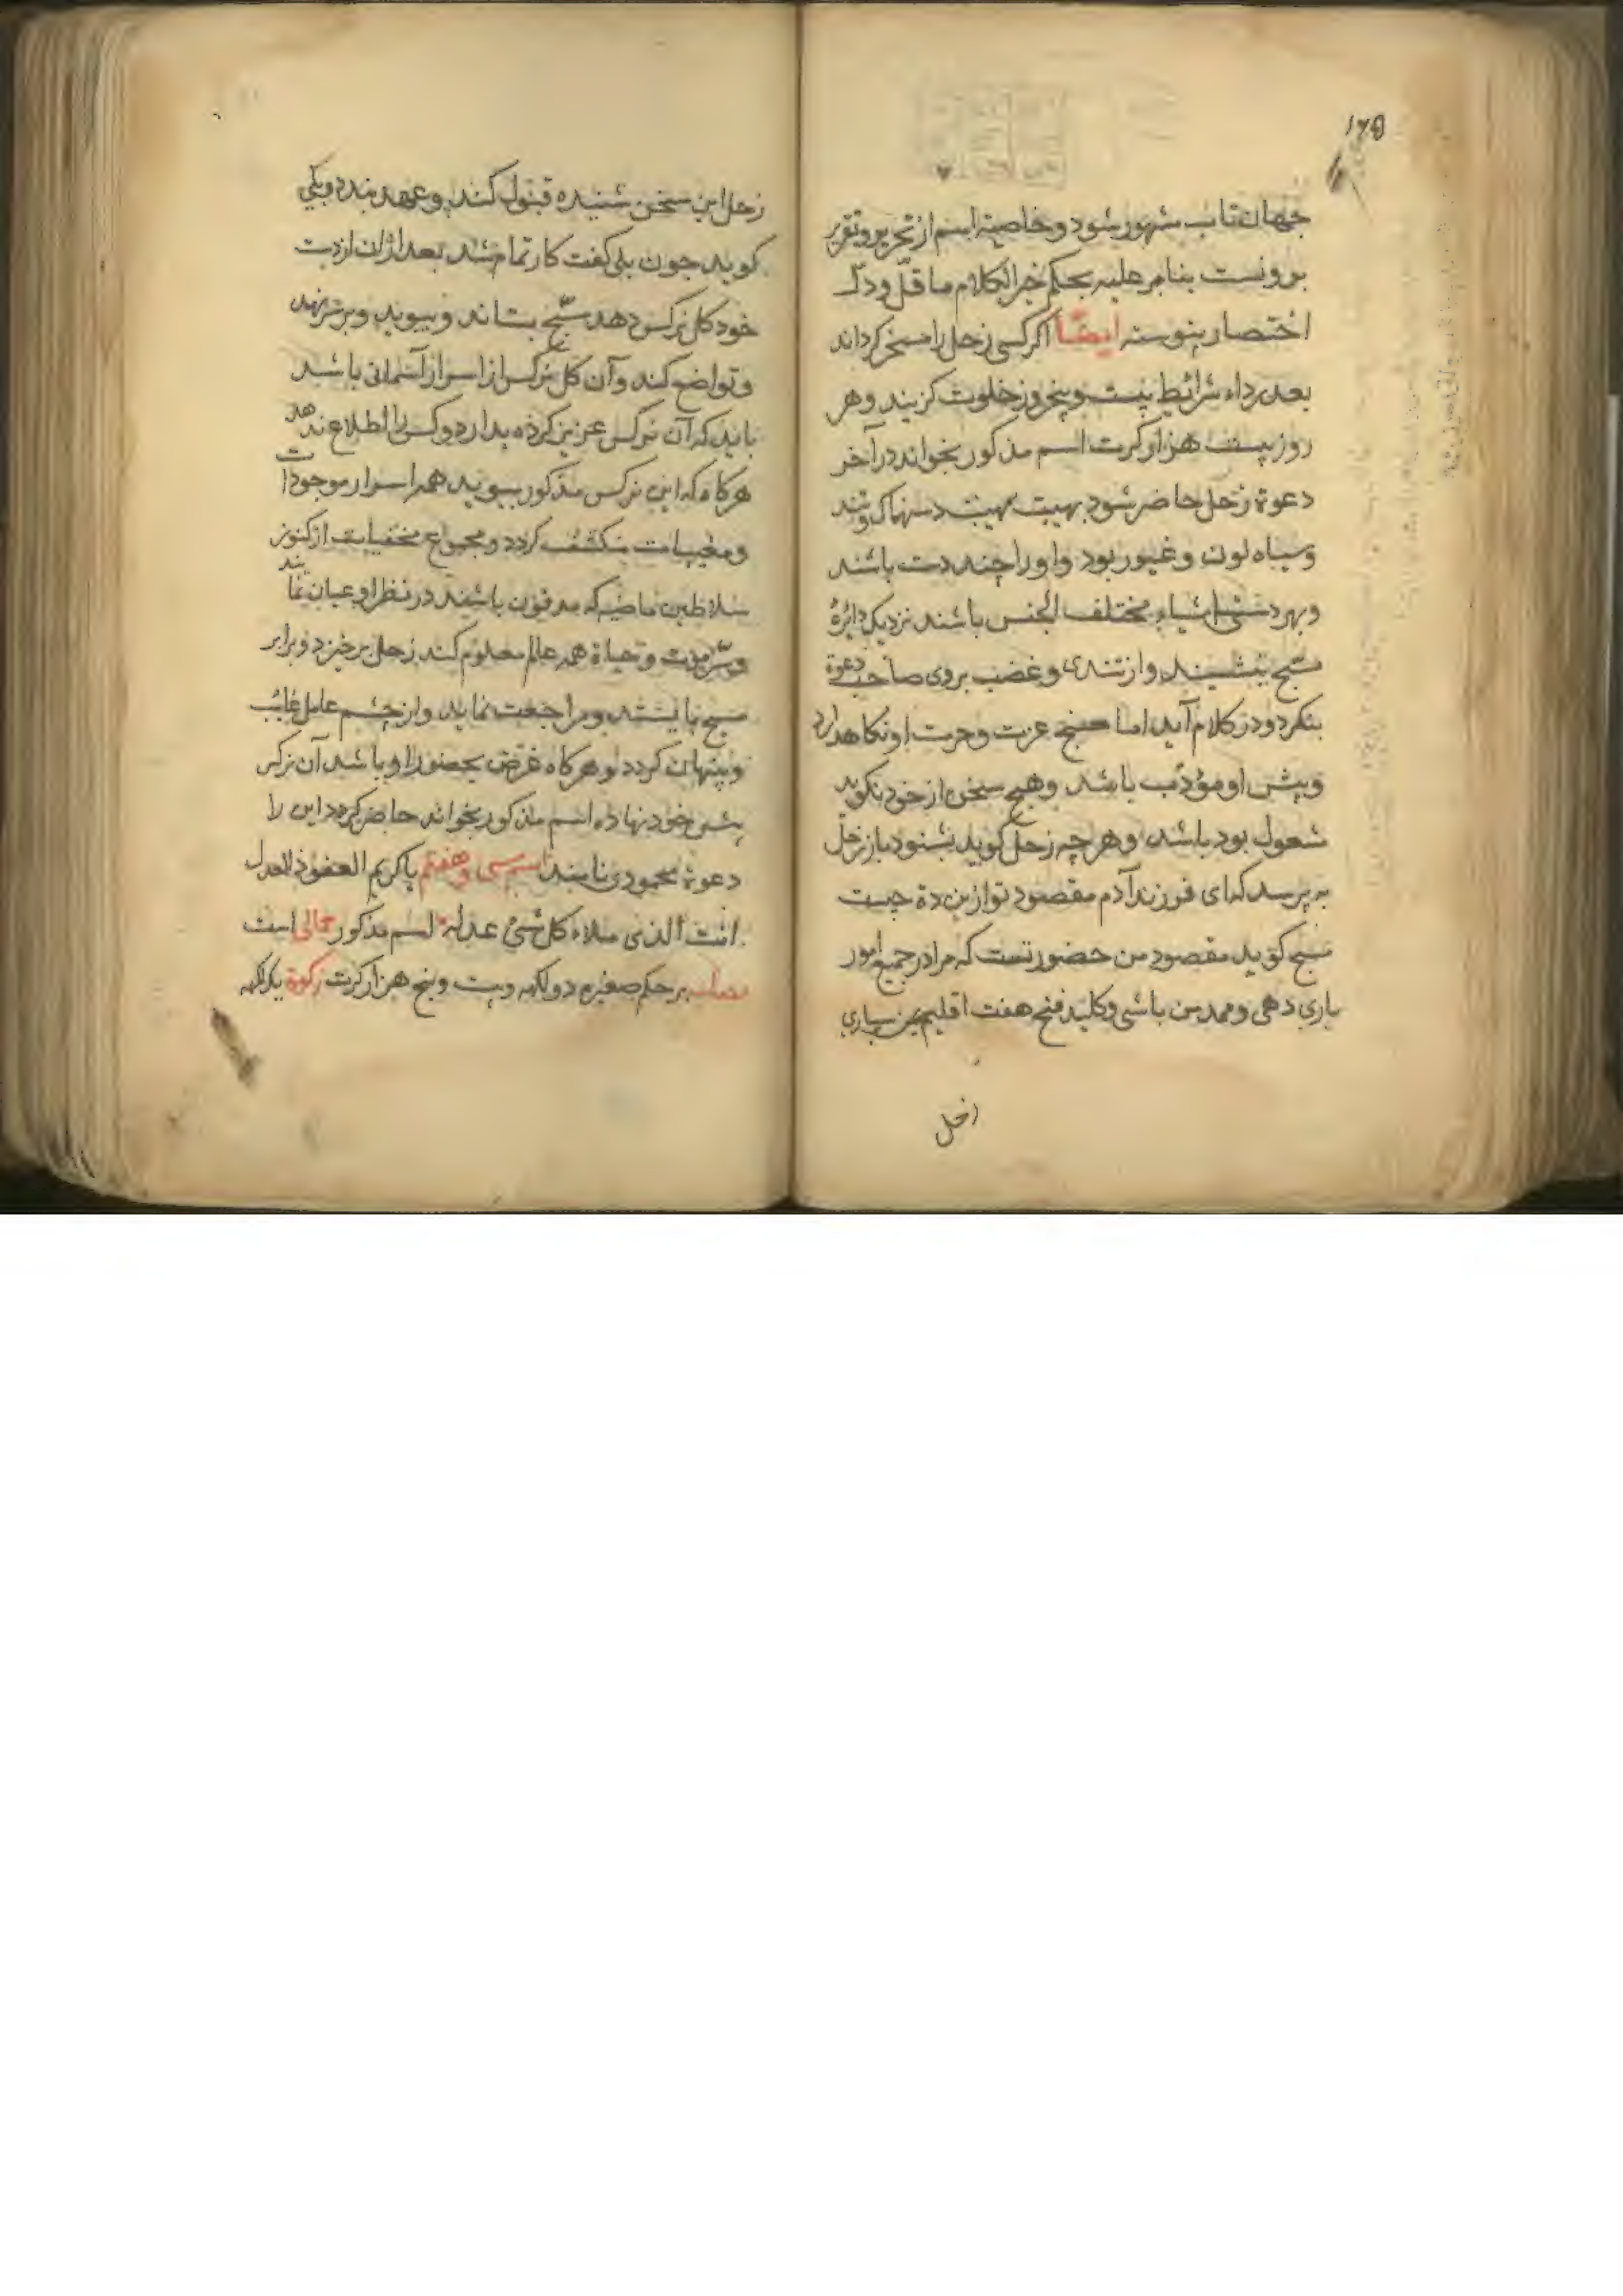 ۱۶۵
جهان تاب مشهور شود و خاصیة اسم از تحریر و تقریر
برونست بنابر علیه بحکم خیر الکلام ما قلّ و دلّ
اختصار پیوسته ایضاً اگر کسی زحل را مسخر کرداند
بعده برداء شرائط بیست و پنج روز خلوت کزیند و هر
روز بیست هزار کرت اسم مذکور بخواند در آخر
دعوة زحل حاضر شود بهیبت مهیب سهمناک و تند
و سیاه لون و غیور بود و او را چند دست باشند
و بهر دستی اشیاء مختلف الجنس باشند نزدیک دایرهٔ
مسبح بنشیند و از تندی و غضب بروی صاحب دعوة
بنکرد و در کلام آید اما مسبح عزت و حرمت او نکاهدارد
و پیش او مؤدّب باشد و هیچ سخن از خود نکوید
مشغول بود باشد و هر چه زحل کوید بشنود باز زحل
بپرسد که ای فرزند آدم مقصود تو ازین دعوة چیست
مسبح کوید مقصود من حضور تست که مرا در جمیع امور
یاری دهی و ممد من باشی و کلید فتح هفت اقلیم بمن سپاری
زحل
زحل این سخن شنیده قبول کند و عهد بندد و بلی
کوید چون بلی کفت کار تمام شد بعد ازان از دست
خود کل نرکس دهد مسبّح بستاند و ببوید و بر سر نهد
و تواضع کند و آن کل نرکس از اسرار آسمانی باشد
باید که آن نرکس عزیز کرده بدارد و کسی را اطلاع ندهد
هرکاه که این نرکس مذکور ببوید همه اسرار موجودات
و مغیبات منکشف کردد و مجموع مخفیات از کنوز
سلاطین ماضیه که مدفون باشند در نظر او عیان نمایند
و سرّ موت و حیاة همه عالم معلوم کند زحل برخیزد و برابر
مسبح بایستد و مراجعت نماید و از چشم عامل غائب
و پنهان کردد و هرکاه غرض بحضور او باشد آن نرکس
پیش خود نهاده اسم مذکور بخواند حاضر کردد این را
دعوة محمودی نامند اسم سی و هفتم یا کریم العفو ذا العدل
انت الذی ملاء کل شیء عدله اسم مذکور جمالی است
نصاب بر حکم صغیره دو لکهه و بیست و پنج هزار کرت زکوة یک لکهه